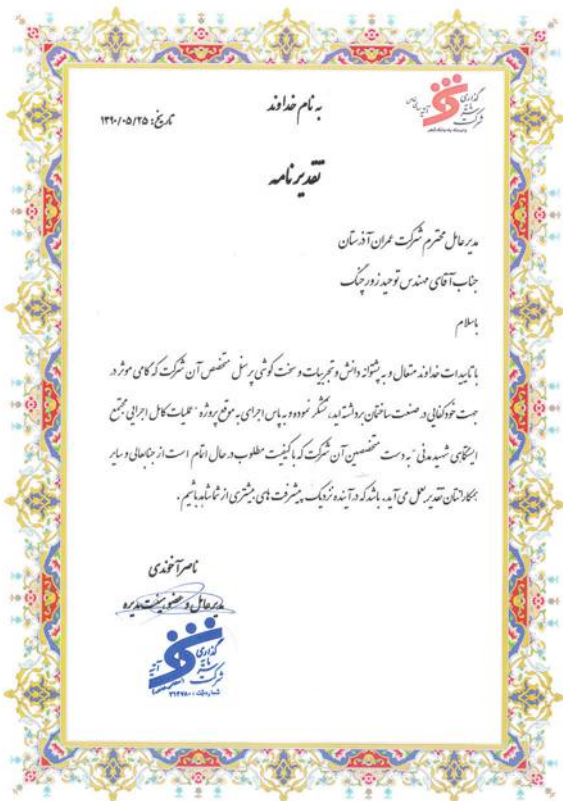 به نام خداوند
تاریخ: ۱۳۹۰/۰۵/۲۵
گذاری
مایه
سر
شرکت
تقدیرنامه
مدیرعامل محترم شرکت عمران آذرستان
جناب آقای مهندس توحید زورچنگ
باسلام
با تاییدات خداوند متعال و به پشتوانه دانش و تجربیات و سخت کوشی پرسنل متخصص آن شرکت که گامی موثر در
جهت خودکفایی در صنعت ساختمان برداشته اند، تشکر نموده و به پاس اجرای به موقع پروژه "عملیات کامل اجرایی مجتمع
ایستگاهی شهید مدنی" به دست متخصصین آن شرکت که با کیفیت مطلوب در حال اتمام است از جنابعالی و سایر
همکارانتان تقدیر بعمل می آید. باشد که در آینده نزدیک پیشرفت های بیشتری از شما شاهد باشیم.
ناصر آخوندی
مدیرعامل و عضو هیئت مدیره
گذاری
مایه
سر
شرکت
آتیه
شماره ثبت: ۳۱۴۷۸۰